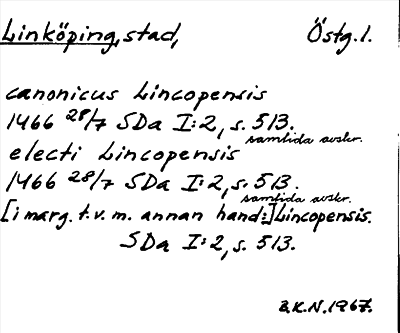 Linköping, stad, Östg.l.
canonicus Lincopensis
1466 28/7 SDa I:2, s. 513.
samtida avskr.
electi Lincopensis
1466 28/7 SDa I:2, s. 513.
samtida avskr.
[i marg. t.v. m. annan hand:] Lincopensis.
SDa I:2, s. 513.
B.K.N. 1967.